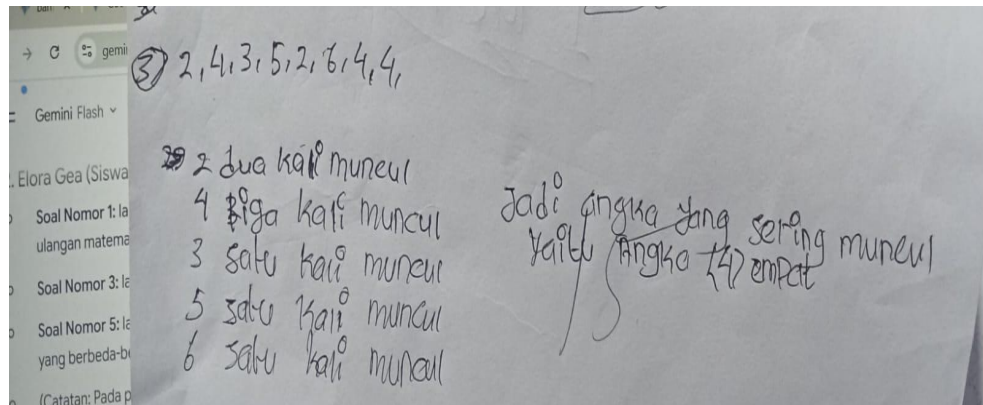 gemi
Gemini Flash
. Elora Gea (Siswa
Soal Nomor 1: la
ulangan matema
Soal Nomor 3: la
Soal Nomor 5: la
yang berbeda-b
(Catatan: Pada p
3) 2, 4, 3, 5, 2, 6, 4, 4,
2 dua kali muncul
4 tiga kali muncul
3 satu kali muncul
5 satu kali muncul
6 satu kali muncul
Jadi angka yang sering muncul
yaitu Angka (4) empat